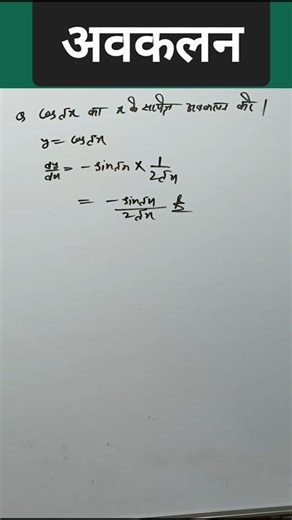 अवकलन
Q cos√x का x के सापेक्ष अवकलन करें |
y = cos√x
dy/dx = - sin√x × 1/2√x
= - sin√x/2√x